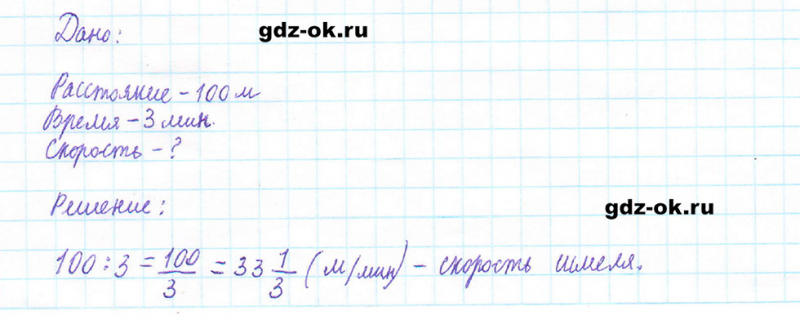 Дано:
gdz-ok.ru
Расстояние - 100 м
Время - 3 мин.
Скорость - ?
Решение:
gdz-ok.ru
100 : 3 = 100/3 = 33 1/3 (м/мин) - скорость шмеля.